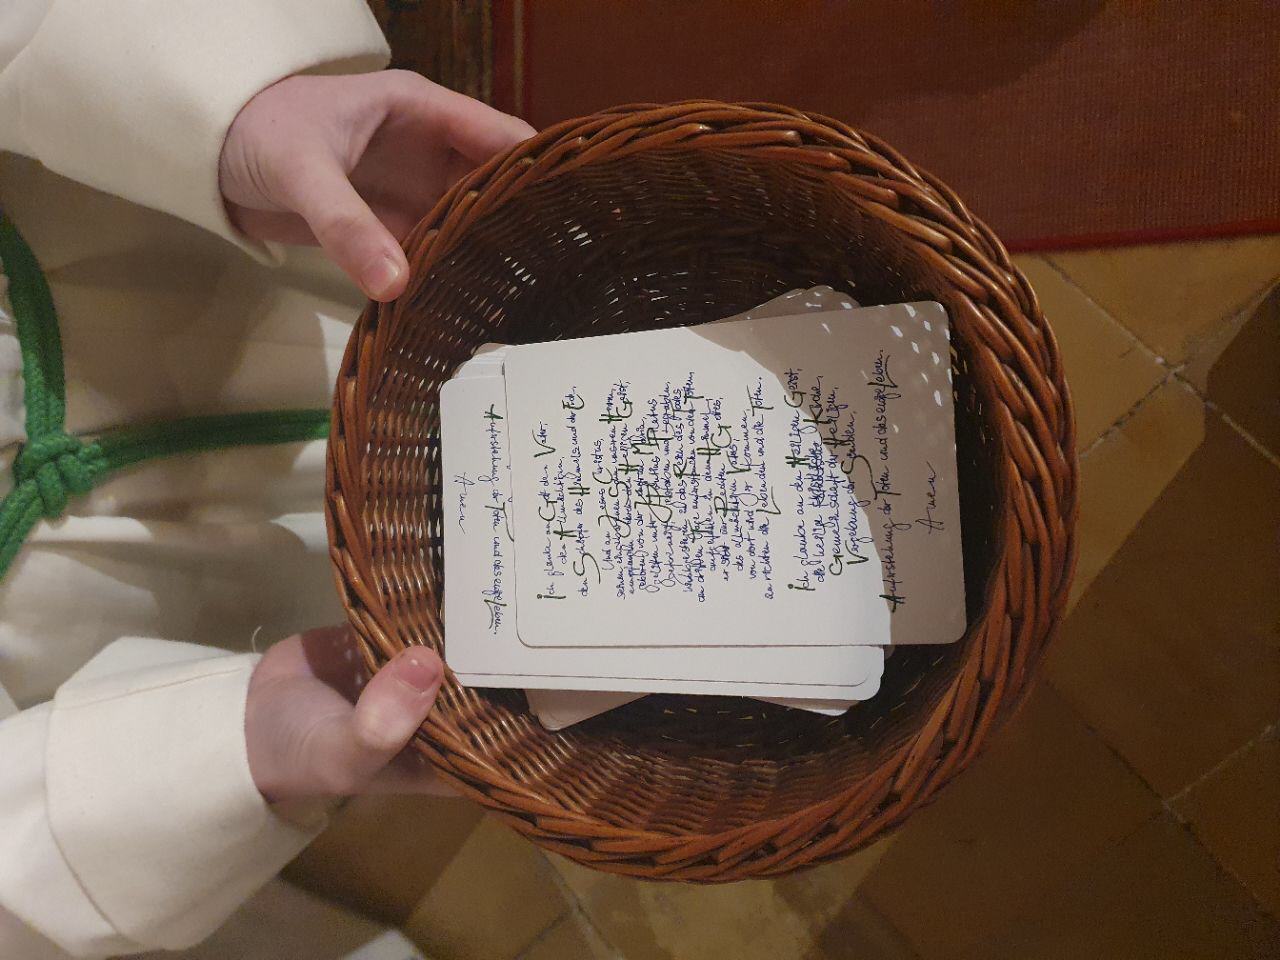 Ich glaube an Gott den Vater,
den Allmächtigen
den Schöpfer des Himmels und der Erde,
Und an Jesus Christus,
seinen eingeborenen Sohn unseren Herrn,
empfangen durch den Heiligen Geist,
geboren von der Jungfrau Maria,
gelitten unter Pontius Pilatus
gekreuzigt, gestorben und begraben,
hinabgestiegen in das Reich des Todes
am dritten Tage auferstanden von den Toten,
aufgefahren in den Himmel;
er sitzt zur Rechten Gottes,
des allmächtigen Vaters,
von dort wird Er kommen,
zu richten die Lebenden und die Toten.
Ich glaube an den Heiligen Geist,
die heilige katholische Kirche,
Gemeinschaft der Heiligen,
Vergebung der Sünden,
Auferstehung der Toten und das ewige Leben.
Amen
Auferstehung der Toten und das ewige Leben.
Amen